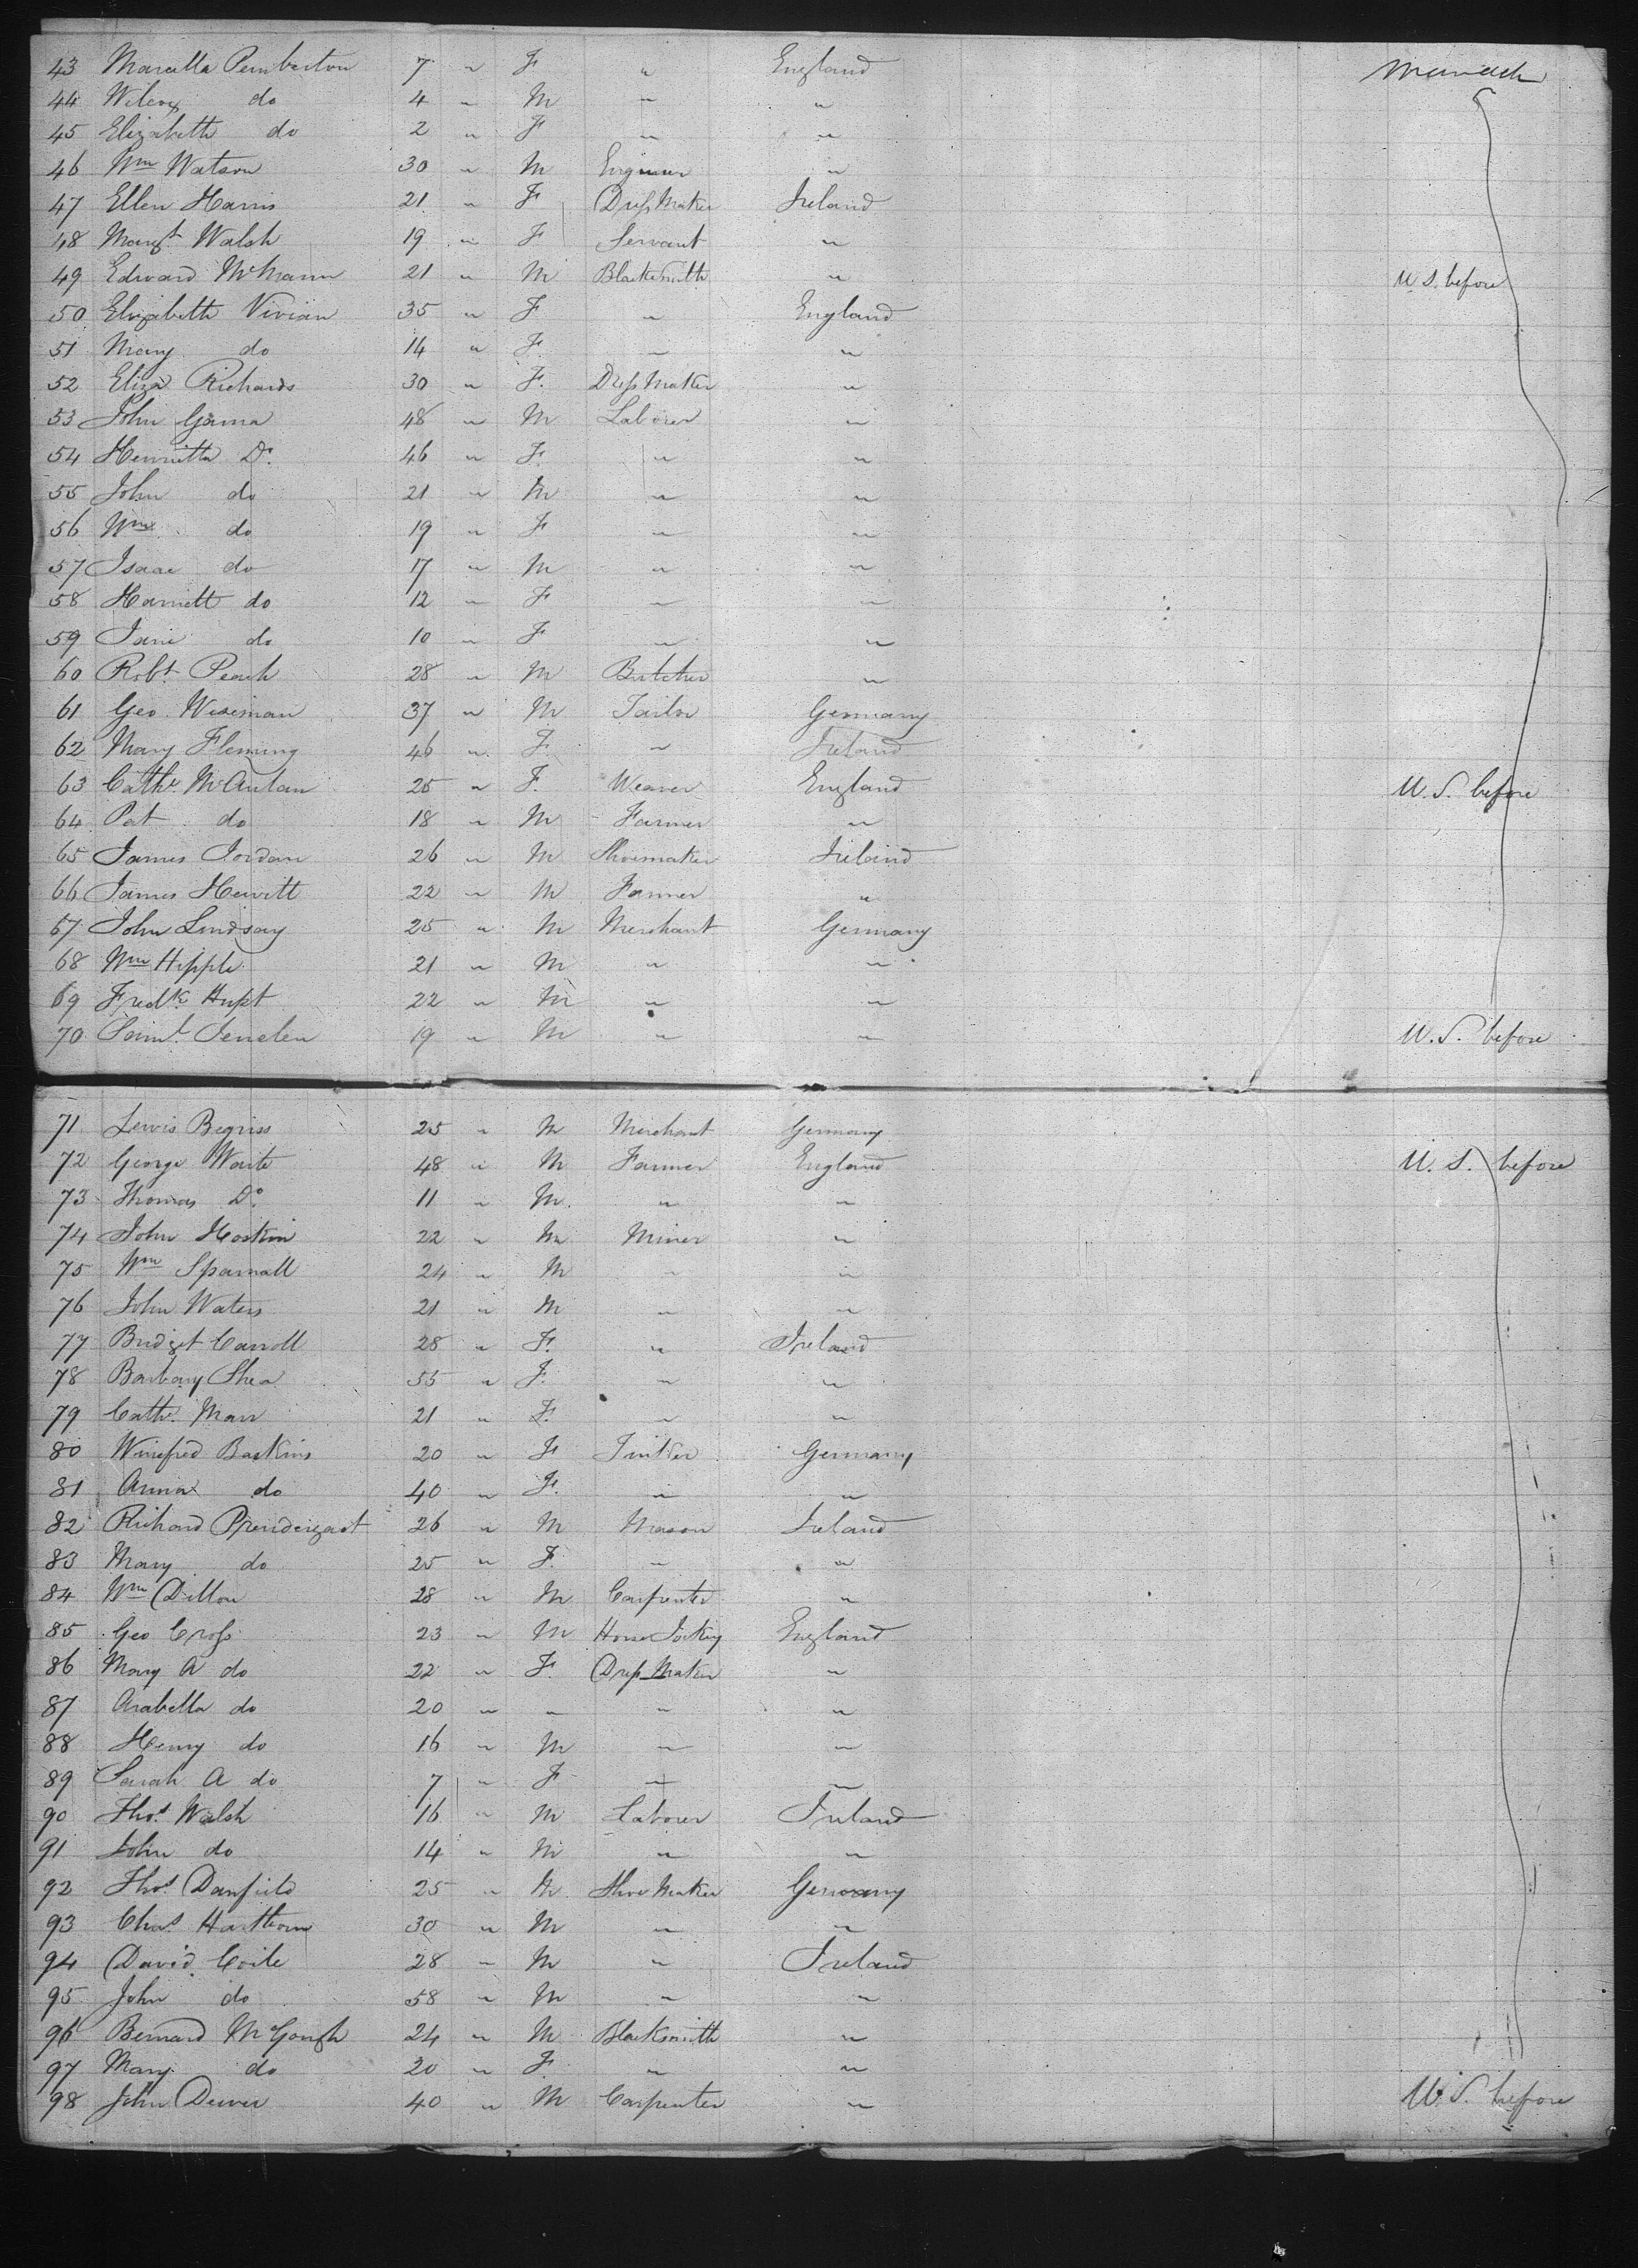 43 Marcella Pemberton 7 " F " England
44 Wilcox do 4 " M " "
45 Elizabeth do 2 " F " "
46 Wm Watson 30 " M Engineer "
47 Ellen Harris 21 " F Dress Maker Ireland
48 Margt Walsh 19 " F Servant "
49 Edward McMann 21 " M Blacksmith " U.S. before
50 Elizabeth Vivian 35 " F " England
51 Mary do 14 " F. " "
52 Eliza Richards 30 " F. Dress Maker "
53 John 48 " M Laborer "
54 Henrietta Do. 46 " F. " "
55 John do 21 " M " "
56 Wm do 19 " F " "
57 Isaac do 17 " M " "
58 Harriett do 12 " F " "
59 Jane do 10 " F " "
60 Robt. Peach 28 " M Butcher "
61 Geo. Wiseman 37 " M Tailor Germany
62 Mary Fleming 46 " F. " Ireland
63 Cathe. 25 " F. Weaver England U.S. before
64 Pat do 18 " M Farmer "
65 James Jordan 26 " M Shoemaker Ireland
66 James Hewitt 22 " M Farmer "
67 John Lindsay 25 " M Merchant Germany
68 Wm Hipple 21 " M " "
69 Fredk. Hupt 22 " M " "
70 Saml. 19 " M " " U.S. before
71 Lewis 25 " M Merchant Germany
72 George Waite 48 " M Farmer England U.S. before
73 Thomas Do. 11 " M. " "
74 John Hoskin 22 " M Miner "
75 Wm 24 " M " "
76 John Waters 21 " M " "
77 Bridget Carroll 28 " F. " Ireland
78 Barbary Shea 55 " F. " "
79 Cathe. Marr 21 " F. " "
80 Winefred Baskins 20 " F Tinker Germany
81 Anna do 40 " F. " "
82 Richard Prendergast 26 " M Mason Ireland
83 Mary do 25 " F. " "
84 Wm Dillon 28 " M Carpenter "
85 Geo Cross 23 " M Horse Jockey England
86 Mary A do 22 " F. Dress Maker "
87 Arabella do 20 " " " "
88 Henry do 16 " M " "
89 Sarah A do 7 " F " "
90 Thos. Walsh 16 " M Laborer Ireland
91 John do 14 " M " "
92 Thos. Danfield 25 " M Shoe Maker Germany
93 Chas. Harthorn 30 " M " "
94 David Coile 28 " M " Ireland
95 John do 58 " M " "
96 Bernard McGough 24 " M Blacksmith "
97 Mary do 20 " F " "
98 John 40 " M Carpenter " U.S. before